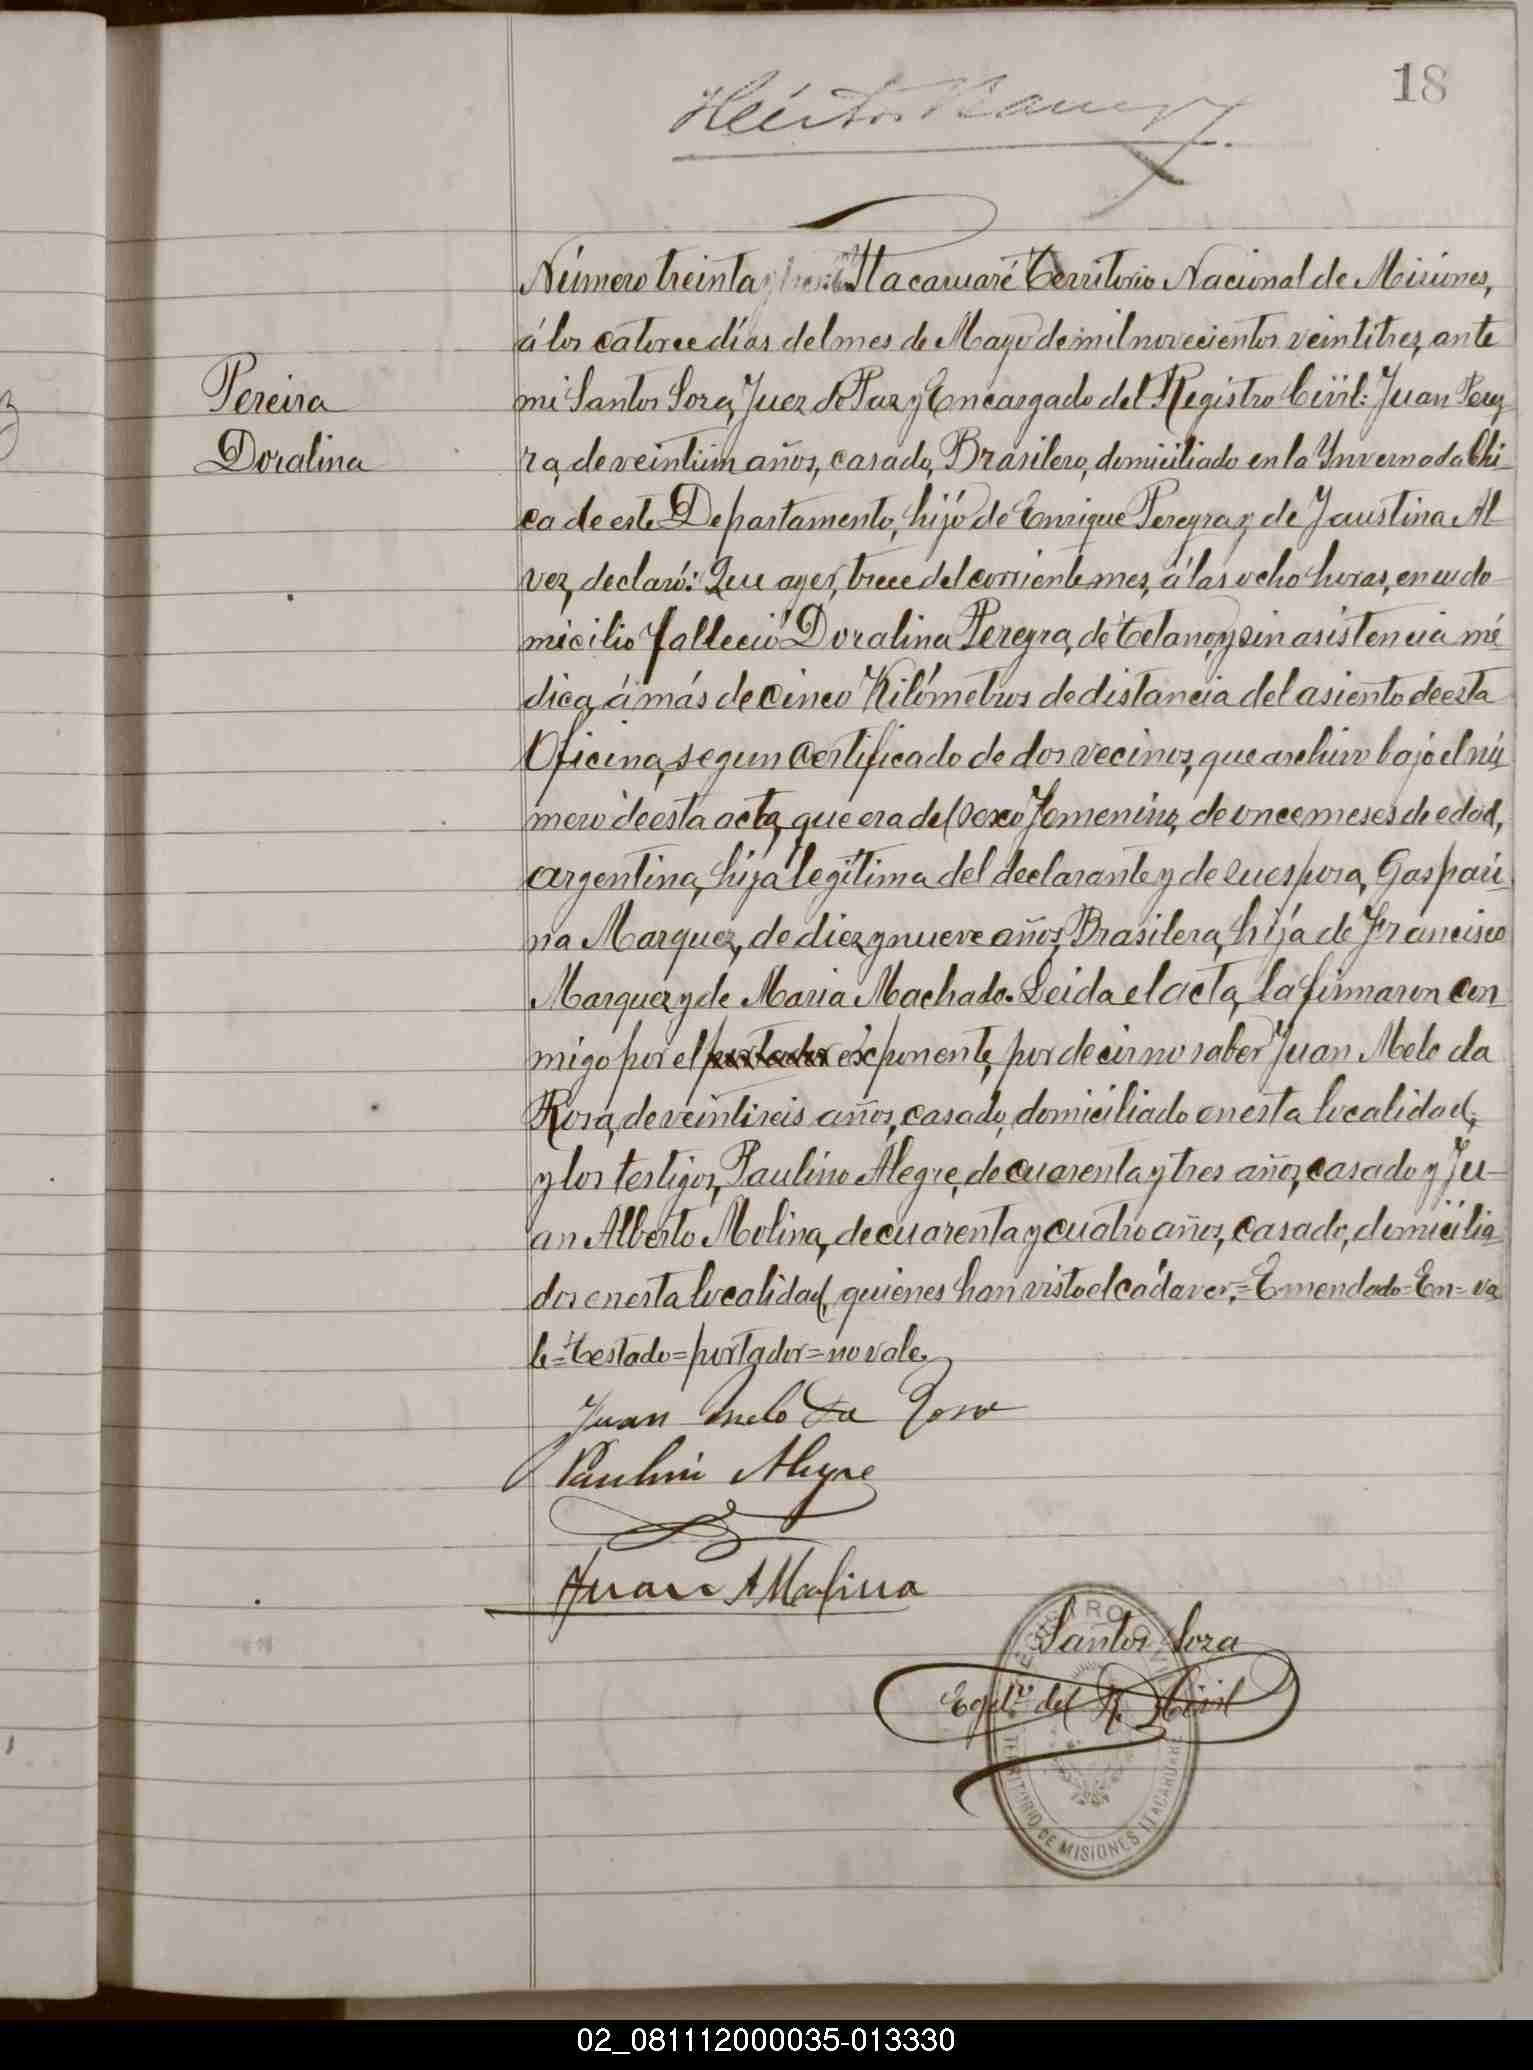 18
Héctor
Número treinta y En Itacaruaré Territorio Nacional de Misiones,
á los catorce días del mes de Mayo de mil novecientos veintitres, ante
Pereira
Doralina
mi Santos Soza, Juez de Paz y Encargado del Registro Civil: Juan Perey
ra, de veintiun años, casado, Brasilero, domiciliado en la Ynvernada Chi
ca de este Departamento, hijo de Enrique Pereyra y de Faustina Al
vez, declaró: Que ayer, trece del corriente mes, á las ocho horas, en su do
micilio falleció Doralina Pereyra, de Tetano, y sin asistencia mé
dica, á más de cinco Kilómetros de distancia del asiento de esta
Oficina, segun certificado de dos vecinos, que archivo bajo el nú
mero de esta acta, que era del sexo femenino, de once meses de edad,
argentina, hija legítima del declarante y de su esposa, Gaspari
na Marquez, de diez y nueve años, Brasilera, hija de Francisco
Marquez y de Maria Machado. Leida el acta, la firmaron con
migo por el portador exponente, por decir no saber Juan Melo da
Rosa, de veintiseis años, casado, domiciliado en esta localidad,
y los testigos, Paulino Alegre, de cuarenta y tres años, casado y Ju-
an Alberto Molina, de cuarenta y cuatro años, casado, domicilia
dos en esta localidad, quienes han visto el cádaver,=Emendado=En=va
le=Testado=portador=no vale.
Juan Melo da Rosa
Paulino Alegre
Juan A Molina
Santos Soza
Egdo. del R. Civil
REGISTRO CIVIL
TERRITORIO DE MISIONES ITACARUARE
02_081112000035-013330